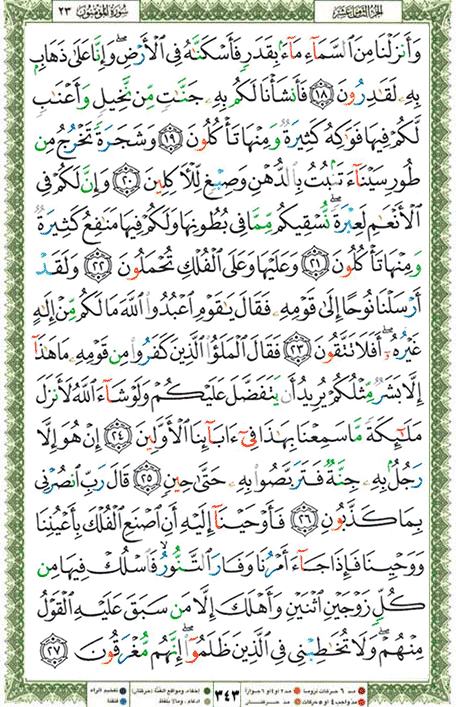 سُورَةُ المُؤْمِنُون ٢٣
الجُزْءُ الثَّامِنَ عَشَرَ
وَأَنزَلْنَا مِنَ ٱلسَّمَآءِ مَآءًۢ بِقَدَرٍ فَأَسْكَنَّـٰهُ فِى ٱلْأَرْضِ ۖ وَإِنَّا عَلَىٰ ذَهَابٍۭ
بِهِۦ لَقَـٰدِرُونَ ١٨ فَأَنشَأْنَا لَكُم بِهِۦ جَنَّـٰتٍ مِّن نَّخِيلٍ وَأَعْنَـٰبٍ
لَّكُمْ فِيهَا فَوَٰكِهُ كَثِيرَةٌ وَمِنْهَا تَأْكُلُونَ ١٩ وَشَجَرَةً تَخْرُجُ مِن
طُورِ سَيْنَآءَ تَنۢبُتُ بِٱلدُّهْنِ وَصِبْغٍ لِّلْـَٔاكِلِينَ ٢٠ وَإِنَّ لَكُمْ فِى
ٱلْأَنْعَـٰمِ لَعِبْرَةً ۖ نُّسْقِيكُم مِّمَّا فِى بُطُونِهَا وَلَكُمْ فِيهَا مَنَـٰفِعُ كَثِيرَةٌ
وَمِنْهَا تَأْكُلُونَ ٢١ وَعَلَيْهَا وَعَلَى ٱلْفُلْكِ تُحْمَلُونَ ٢٢ وَلَقَدْ
أَرْسَلْنَا نُوحًا إِلَىٰ قَوْمِهِۦ فَقَالَ يَـٰقَوْمِ ٱعْبُدُوا۟ ٱللَّهَ مَا لَكُم مِّنْ إِلَـٰهٍ
غَيْرُهُۥٓ ۖ أَفَلَا تَتَّقُونَ ٢٣ فَقَالَ ٱلْمَلَؤُا۟ ٱلَّذِينَ كَفَرُوا۟ مِن قَوْمِهِۦ مَا هَـٰذَآ
إِلَّا بَشَرٌ مِّثْلُكُمْ يُرِيدُ أَن يَتَفَضَّلَ عَلَيْكُمْ وَلَوْ شَآءَ ٱللَّهُ لَأَنزَلَ
مَلَـٰٓئِكَةً مَّا سَمِعْنَا بِهَـٰذَا فِىٓ ءَابَآئِنَا ٱلْأَوَّلِينَ ٢٤ إِنْ هُوَ إِلَّا
رَجُلٌۢ بِهِۦ جِنَّةٌ فَتَرَبَّصُوا۟ بِهِۦ حَتَّىٰ حِينٍ ٢٥ قَالَ رَبِّ ٱنصُرْنِى
بِمَا كَذَّبُونِ ٢٦ فَأَوْحَيْنَآ إِلَيْهِ أَنِ ٱصْنَعِ ٱلْفُلْكَ بِأَعْيُنِنَا
وَوَحْيِنَا فَإِذَا جَآءَ أَمْرُنَا وَفَارَ ٱلتَّنُّورُ ۙ فَٱسْلُكْ فِيهَا مِن
كُلٍّ زَوْجَيْنِ ٱثْنَيْنِ وَأَهْلَكَ إِلَّا مَن سَبَقَ عَلَيْهِ ٱلْقَوْلُ
مِنْهُمْ ۖ وَلَا تُخَـٰطِبْنِى فِى ٱلَّذِينَ ظَلَمُوٓا۟ ۖ إِنَّهُم مُّغْرَقُونَ ٢٧
مد ٦ حركات لزوماً مد ٢ أو ٤ أو ٦ جوازاً
مد واجب ٤ أو ٥ حركات مد حركتان
٣٤٣
إخفاء، ومواقع الغُنَّة (حركتان) تفخيم الراء
إدغام، وما لا يُلفظ قلقلة